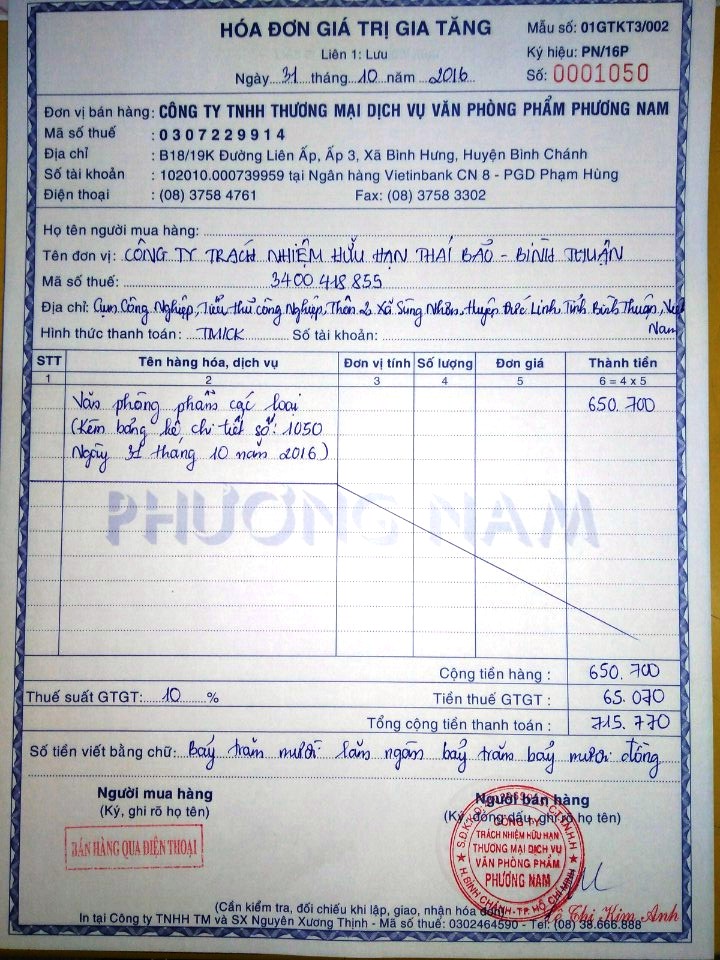 HÓA ĐƠN GIÁ TRỊ GIA TĂNG
Mẫu số: 01GTKT3/002
Liên 1: Lưu
Ký hiệu: PN/16P
Ngày 31 tháng 10 năm 2016
Số: 0001050
Đơn vị bán hàng: CÔNG TY TNHH THƯƠNG MẠI DỊCH VỤ VĂN PHÒNG PHẨM PHƯƠNG NAM
Mã số thuế : 0307229914
Địa chỉ : B18/19K Đường Liên Ấp, Ấp 3, Xã Bình Hưng, Huyện Bình Chánh
Số tài khoản : 102010.000739959 tại Ngân hàng Vietinbank CN 8 - PGD Phạm Hùng
Điện thoại : (08) 3758 4761 Fax: (08) 3758 3302
Họ tên người mua hàng:
Tên đơn vị: CÔNG TY TRÁCH NHIỆM HỮU HẠN THÁI BẢO - BÌNH THUẬN
Mã số thuế: 3400418855
Địa chỉ: Cụm Công Nghiệp, Tiểu thủ công Nghiệp, Thôn 2 Xã Sùng Nhơn, Huyện Đức Linh Tỉnh Bình Thuận, Việt
Nam
Hình thức thanh toán: TM/CK Số tài khoản:
STT Tên hàng hóa, dịch vụ Đơn vị tính Số lượng Đơn giá Thành tiền
1 2 3 4 5 6 = 4 x 5
Văn phòng phẩm các loại 650.700
(Kèm bảng kê chi tiết số: 1050
Ngày 31 tháng 10 năm 2016)
PHƯƠNG NAM
Cộng tiền hàng : 650.700
Thuế suất GTGT: 10 % Tiền thuế GTGT : 65.070
Tổng cộng tiền thanh toán : 715.770
Số tiền viết bằng chữ: Bảy trăm mười lăm ngàn bảy trăm bảy mươi đồng
Người mua hàng
(Ký, ghi rõ họ tên)
BÁN HÀNG QUA ĐIỆN THOẠI
Người bán hàng
(Ký, đóng dấu, ghi rõ họ tên)
CÔNG TY
TRÁCH NHIỆM HỮU HẠN
THƯƠNG MẠI DỊCH VỤ
VĂN PHÒNG PHẨM
PHƯƠNG NAM
H.BÌNH CHÁNH-TP.HỒ CHÍ MINH
Thị Kim Anh
(Cần kiểm tra, đối chiếu khi lập, giao, nhận hóa đơn)
In tại Công ty TNHH TM và SX Nguyên Xương Thịnh - Mã số thuế: 0302464590 - Tel: (08) 38.666.888